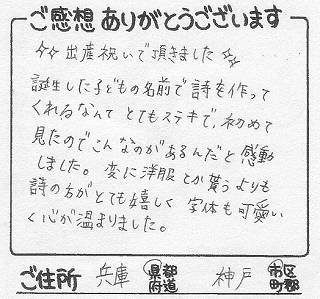 ご感想ありがとうございます
☆☆出産祝いで頂きました☆☆
誕生した子どもの名前で詩を作って
くれるなんてとてもステキで、初めて
見たのでこんなのがあるんだと感動
しました。変に洋服とか貰うよりも
詩の方がとても嬉しく字体も可愛い
く心が温まりました。
ご住所 兵庫 都道府県 神戸 市区町郡